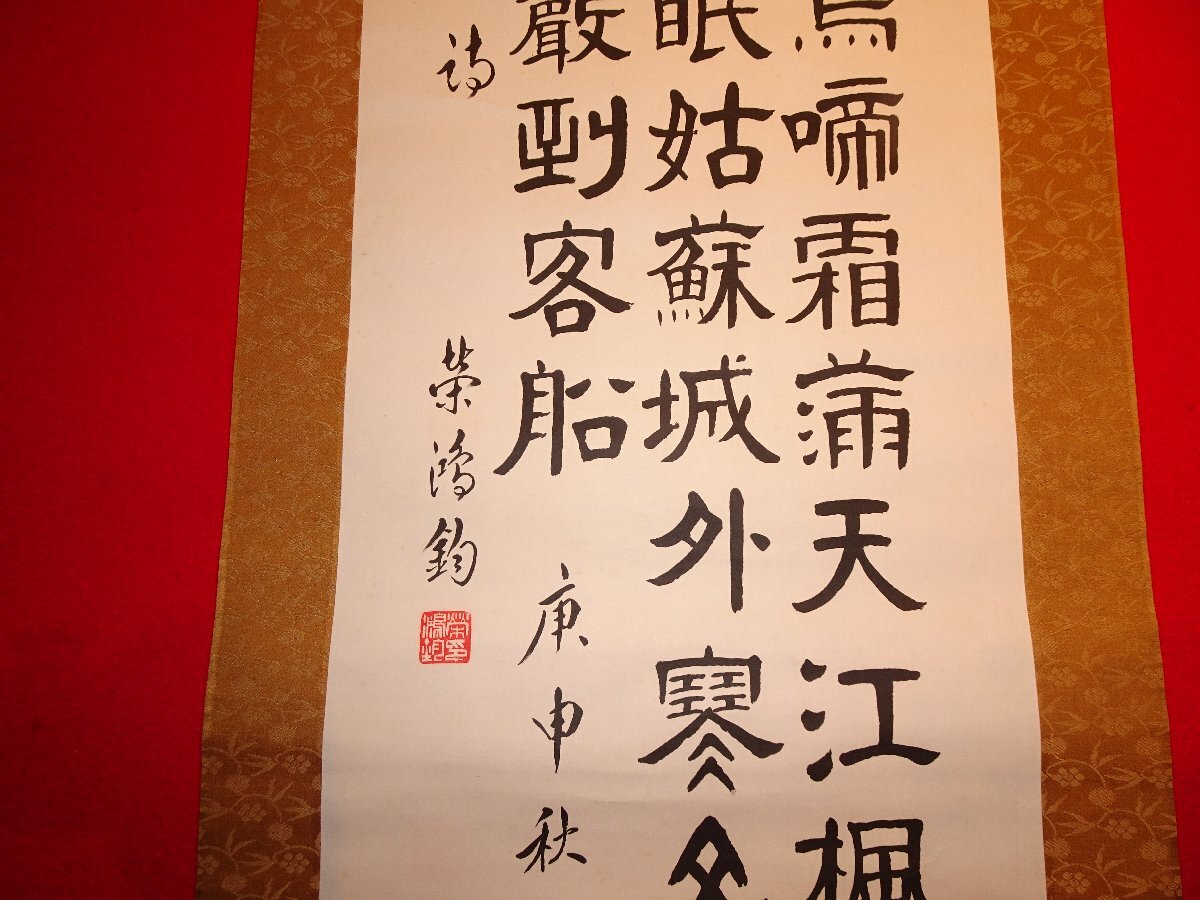 烏啼霜滿天江楓
眠姑蘇城外寒
聲到客船 庚申秋
詩 榮鴻鈞
榮印鴻鈞